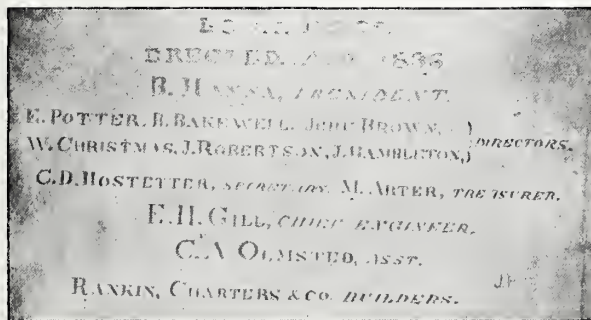 ERECTED. A.D. 1836
B. HANNA, PRESIDENT.
E. POTTER, B. BAKEWELL, JOHN BROWN, } DIRECTORS.
W. CHRISTMAS, J. ROBERTSON, J. HAMBLETON,
C.D. HOSTETTER, SECRETARY. M. ARTER, TREASURER.
E.H. GILL, CHIEF ENGINEER.
C.A OLMSTED, ASST.
RANKIN, CHARTERS & CO. BUILDERS.